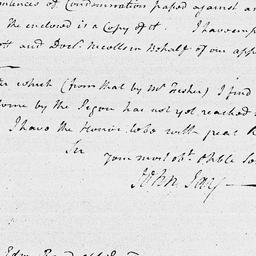 tences of Condemnation passed against an
The enclosed is a Copy of it. I have emp
tt and Doctr. Nicoll in Behalf of our app
which (from that by Mr. Fisher) I find
come by the Pigou has not yet reached
I have the Honor to be with great R
Sir
your most obt. & hble Se
John Jay